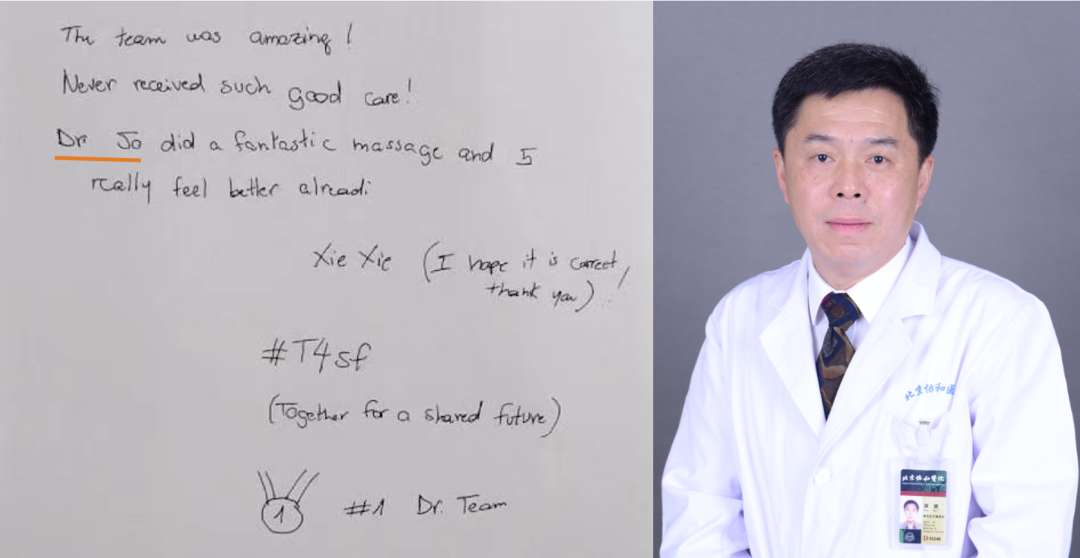 The team was amazing!
Never received such good care!
Dr Jo did a fantastic massage and I
really feel better alreadi
Xie Xie (I hope it is correct,
thank you)
#T4sf
(Together for a shared future)
1 #1 Dr. Team
北京協和
北京協和醫院